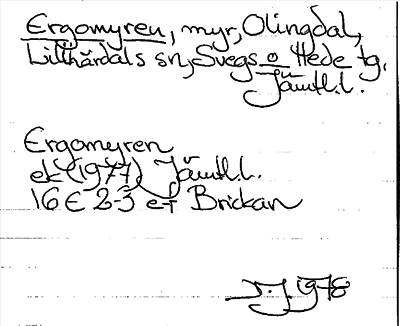 Ergomyren, myr, Olingdal,
Lillhärdals sn, Svegs o Hede tg.
Jämtl.l.
Ergomyren
ek (1977) Jämtl.l.
16E 2-3 e-f Brickan
J.J. 1978